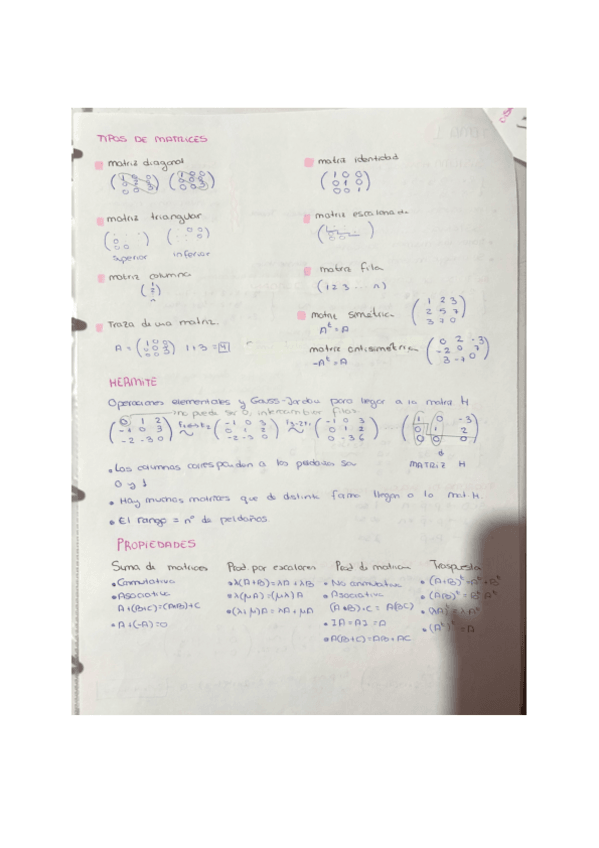 TIPOS DE MATRICES
matriz diagonal
matriz identidad
(1 0 0
0 1 0
0 0 1)
matriz triangular
superior inferior
matriz escalonada
matriz columna
(1
2
n)
matriz fila
(1 2 3 ... n)
Traza de una matriz.
1+3 = 4
matriz simétrica
A^t = A
(1 2 3
2 5 7
3 7 0)
matriz antisimétrica
-A^t = A
(0 2 -3
-2 0 7
3 -7 0)
HERMITE
Operaciones elementales y Gauss-Jordan para llegar a la matriz H
no puede ser 0, intercambiar filas
(0 1 2
-1 0 3
-2 -3 0)
(-1 0 3
0 1 2
-2 -3 0)
(-1 0 3
0 1 2
0 -3 6)
(1 0 -3
0 1 2
0 0 0)
MATRIZ H
• Las columnas corresponden a los peldaños son
0 y 1
• Hay muchas matrices que de distinta forma llegan a la mat H.
• El rango = nº de peldaños.
PROPIEDADES
Suma de matrices
• Conmutativa
• Asociativa
A+(B+C)=(A+B)+C
• A+(-A)=0
Prod. por escalares
• λ(A+B)=λA+λB
• λ(μA)=(μλ)A
• (λ+μ)A=λA+μA
Prod de matrices
• No conmutativa
• Asociativa
(A•B)•C = A(BC)
• IA = AI = A
• A(B+C)=AB+AC
Traspuesta
• (A+B)^t=A^t+B^t
• (AB)^t=B^tA^t
• (λA)^t=λA^t
• (A^t)^t=A